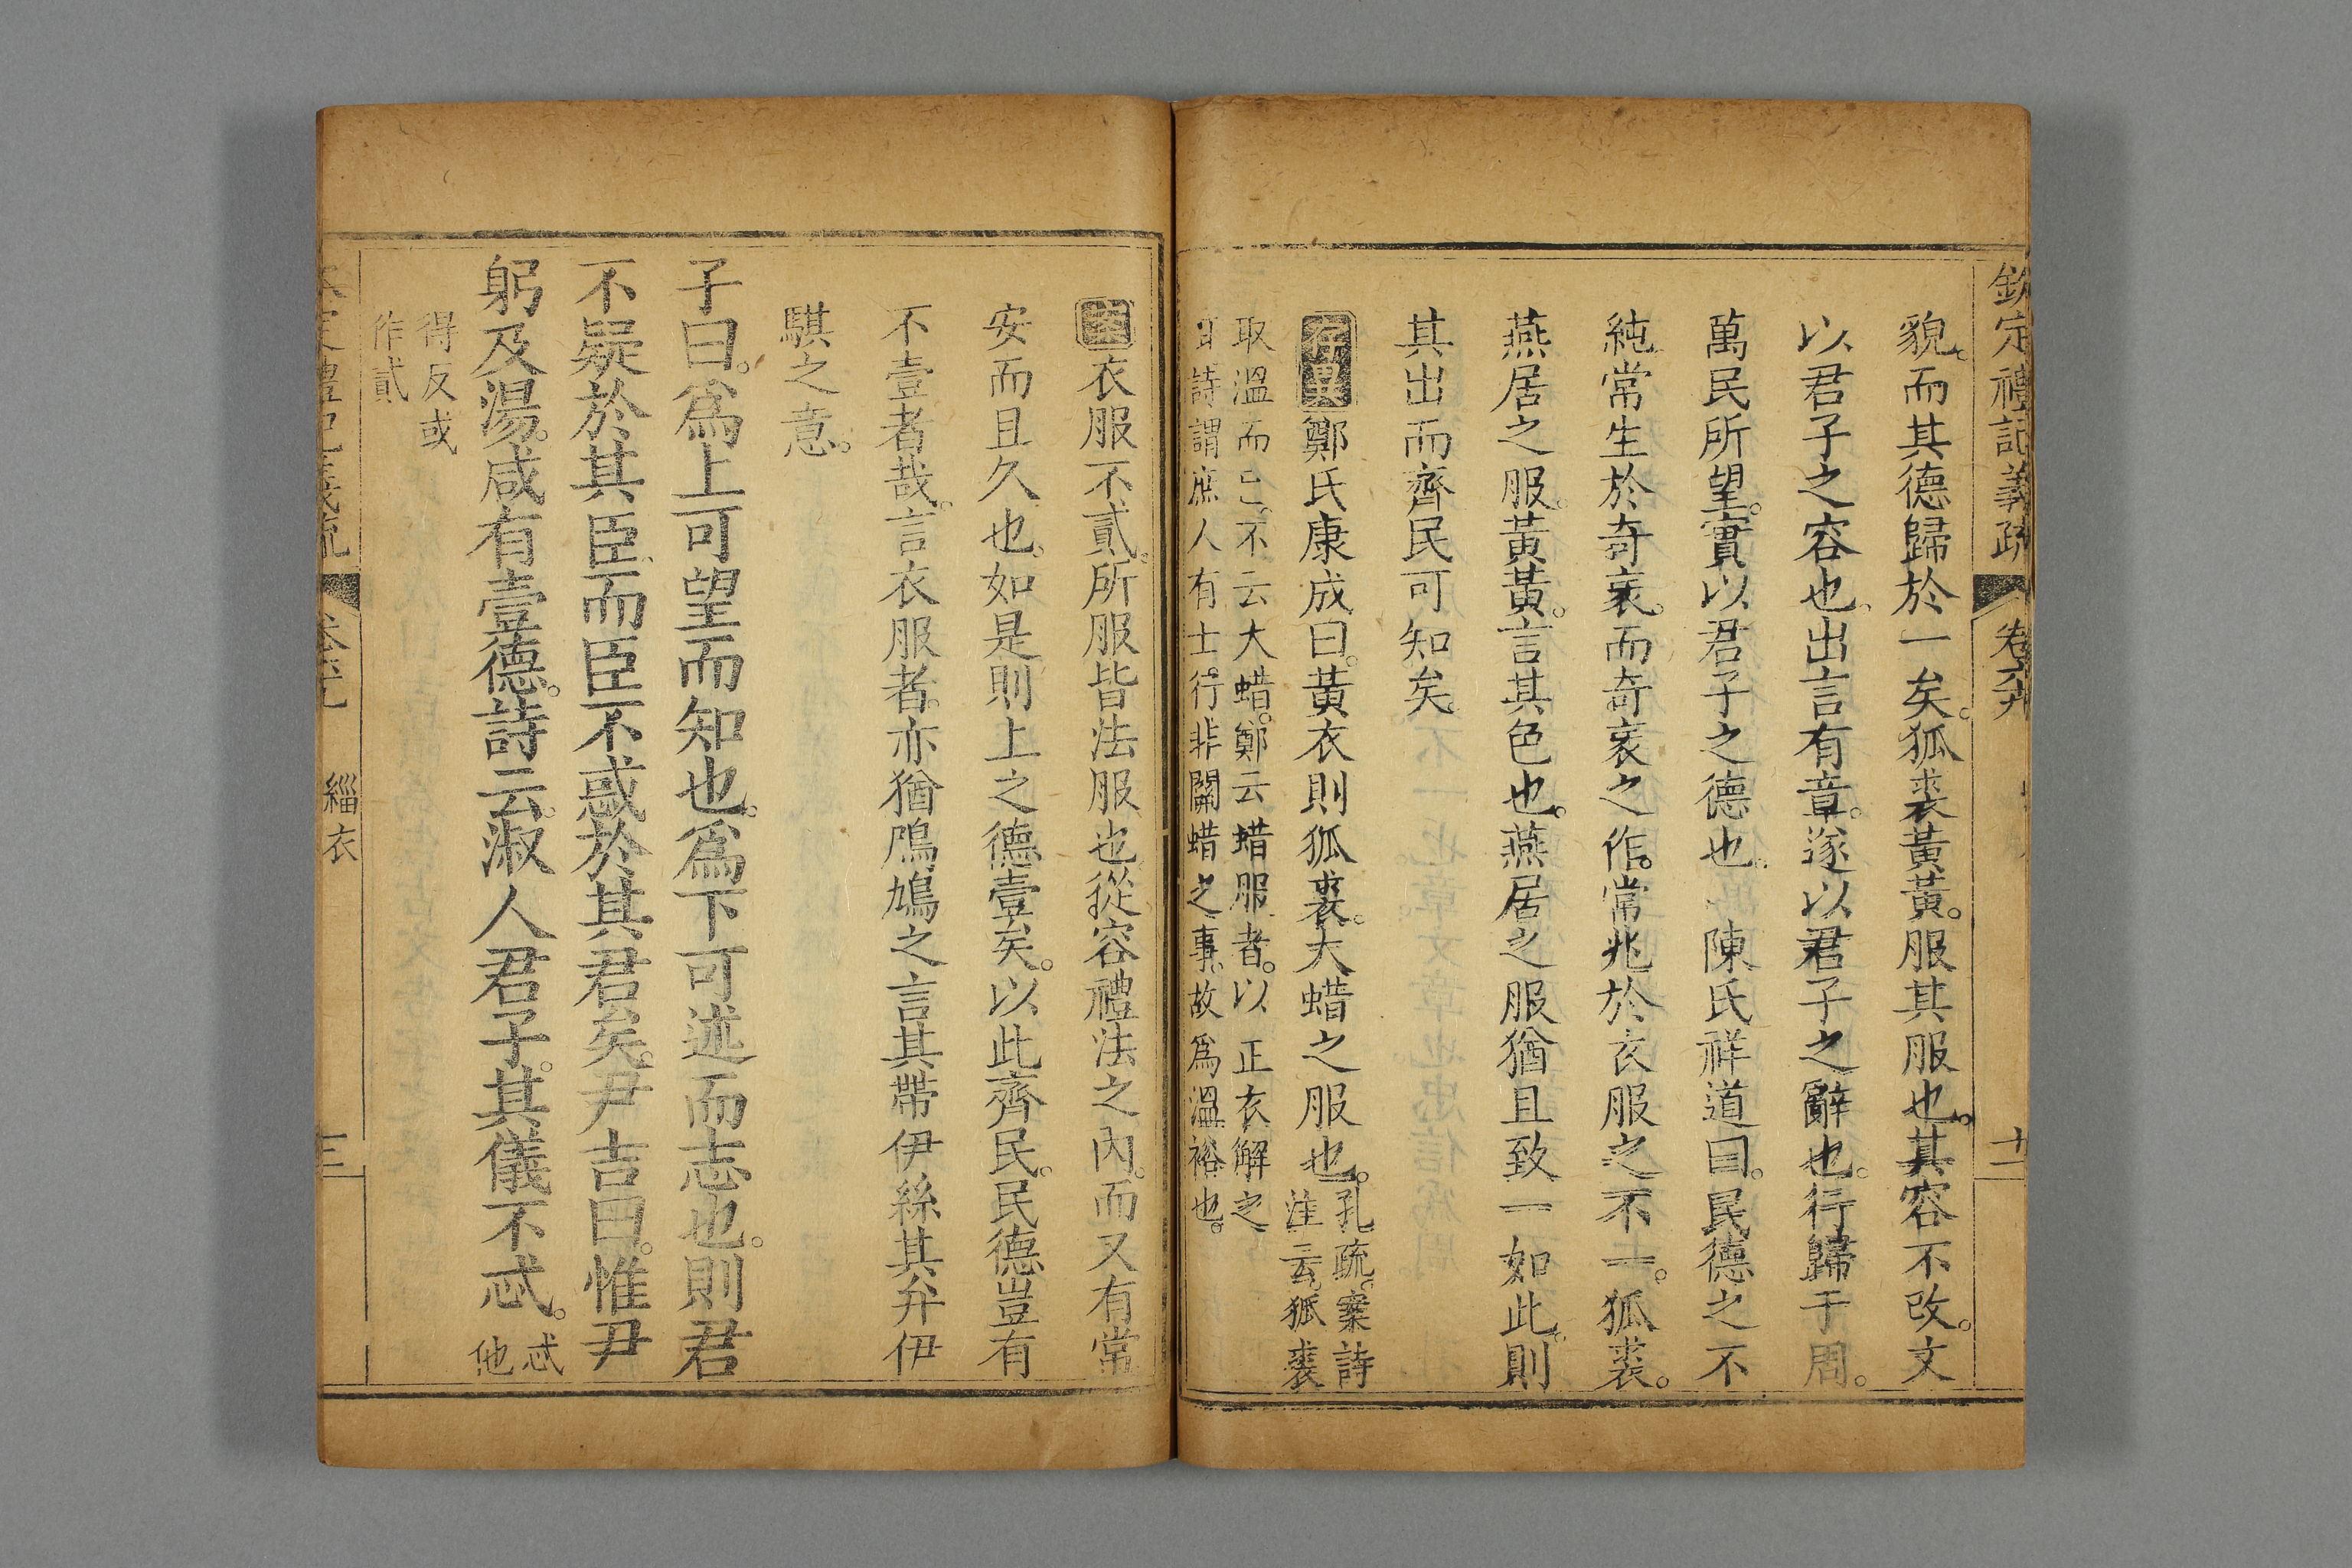 欽定禮記義疏 卷六十九 十二
貌。而其德歸於一矣。狐裘黃黃。服其服也。其容不改。文
以君子之容也。出言有章。遂以君子之辭也。行歸于周。
萬民所望。實以君子之德也。 陳氏祥道曰。民德之不
純。常生於奇衺。而奇衺之作。常兆於衣服之不一。狐裘。
燕居之服。黃黃。言其色也。燕居之服。猶且致一如此。則
其出而齊民可知矣。
存異 鄭氏康成曰。黃衣則狐裘。大蜡之服也。孔疏。案詩
注云。狐裘
取溫而已。不云大蜡。鄭云蜡服者。以正衣解之
耳。詩謂庶人有士行。非關蜡之事。故爲溫裕也。
案 衣服不貳。所服皆法服也。從容禮法之內。而又有常
安而且久也。如是則上之德壹矣。以此齊民。民德豈有
不壹者哉。言衣服者。亦猶鳲鳩之言其帶伊絲其弁伊
騏之意。
子曰。爲上可望而知也。爲下可述而志也。則君
不疑於其臣。而臣不惑於其君矣。尹吉曰。惟尹
躬及湯。咸有壹德。詩云。淑人君子。其儀不忒。忒
他
得反或
作貳
禮記義疏 緇衣